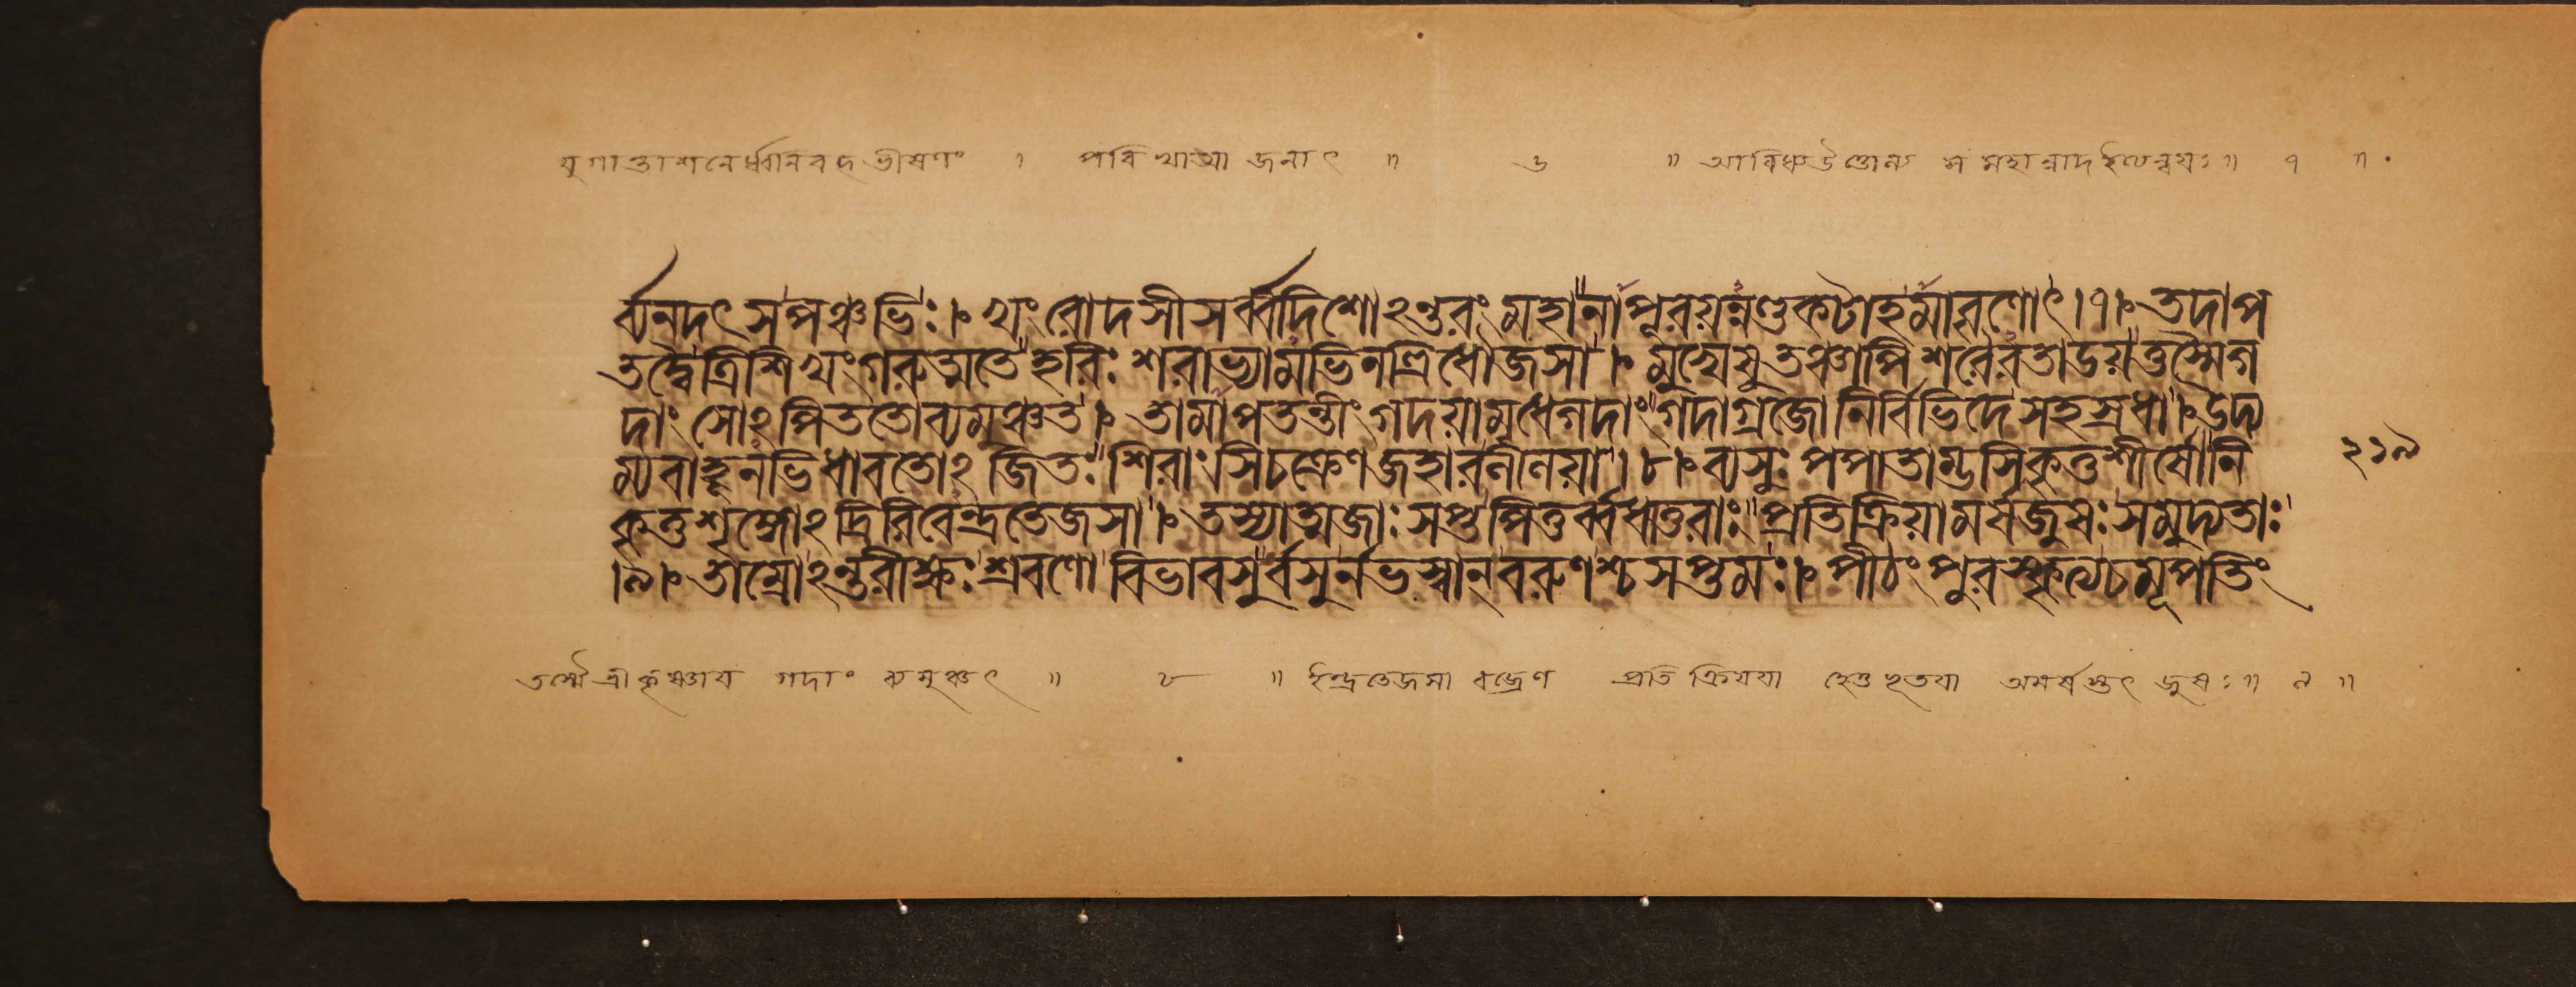 যুগান্তাশনের্ধ্বনিবদ্ভীষণং । পরিখায়া জলাৎ ॥ ৬ ॥ আবিধ্য উত্তোল্য স মহান্নাদ ইত্যন্বয়ঃ ॥ ৭ ॥
র্ব্যনদৎ সপঞ্চভিঃ। স্বং রোদসীসর্ব্বদিশোঽন্তরং মহানাপূরয়ন্নণ্ডকটাহমাবৃণোৎ।৭। তদাপ
তদ্বৈত্রিশিখং গরুত্মতে হরিঃ শরাভ্যামভিনত্ত্রিধৌজসা । মুখেষু তঞ্চাপি শরৈরতাড়য়ত্তস্মৈ গ
দাং সোঽপিততো ব্যমুঞ্চত । তামাপতন্তীং গদয়া মৃধে গদাং গদাগ্রজো নির্বিভিদে সহস্রধা । উদ্য
ম্য বাহূনভিধাবতোঽজিতঃ শিরাংসিচক্রেণ জহার লীলয়া । ৮। ব্যসুঃ পপাতাম্ভসি কৃত্তশীর্ষো নি
২১৯
কৃত্তশৃঙ্গোঽদ্রিরিবেন্দ্রতেজসা । তস্যাত্মজাঃ সপ্তপিতুর্ব্বধাতুরাঃ প্রতিক্রিয়ামর্ষজুষঃ সমুদ্যতাঃ
।৯। তাম্রোঽন্তরীক্ষঃ শ্রবণো বিভাবসুর্বসুর্নভস্বান্ বরুণশ্চ সপ্তমঃ। পীঠং পুরস্কৃত্য চমূপতিং
তস্মৈ শ্রীকৃষ্ণায় গদাং ব্যমুঞ্চৎ ॥ ৮ ॥ ইন্দ্রতেজসা বজ্রেণ প্রতিক্রিয়য়া হেতুভূতয়া অমর্ষস্তৎ জুষঃ ॥ ৯ ॥